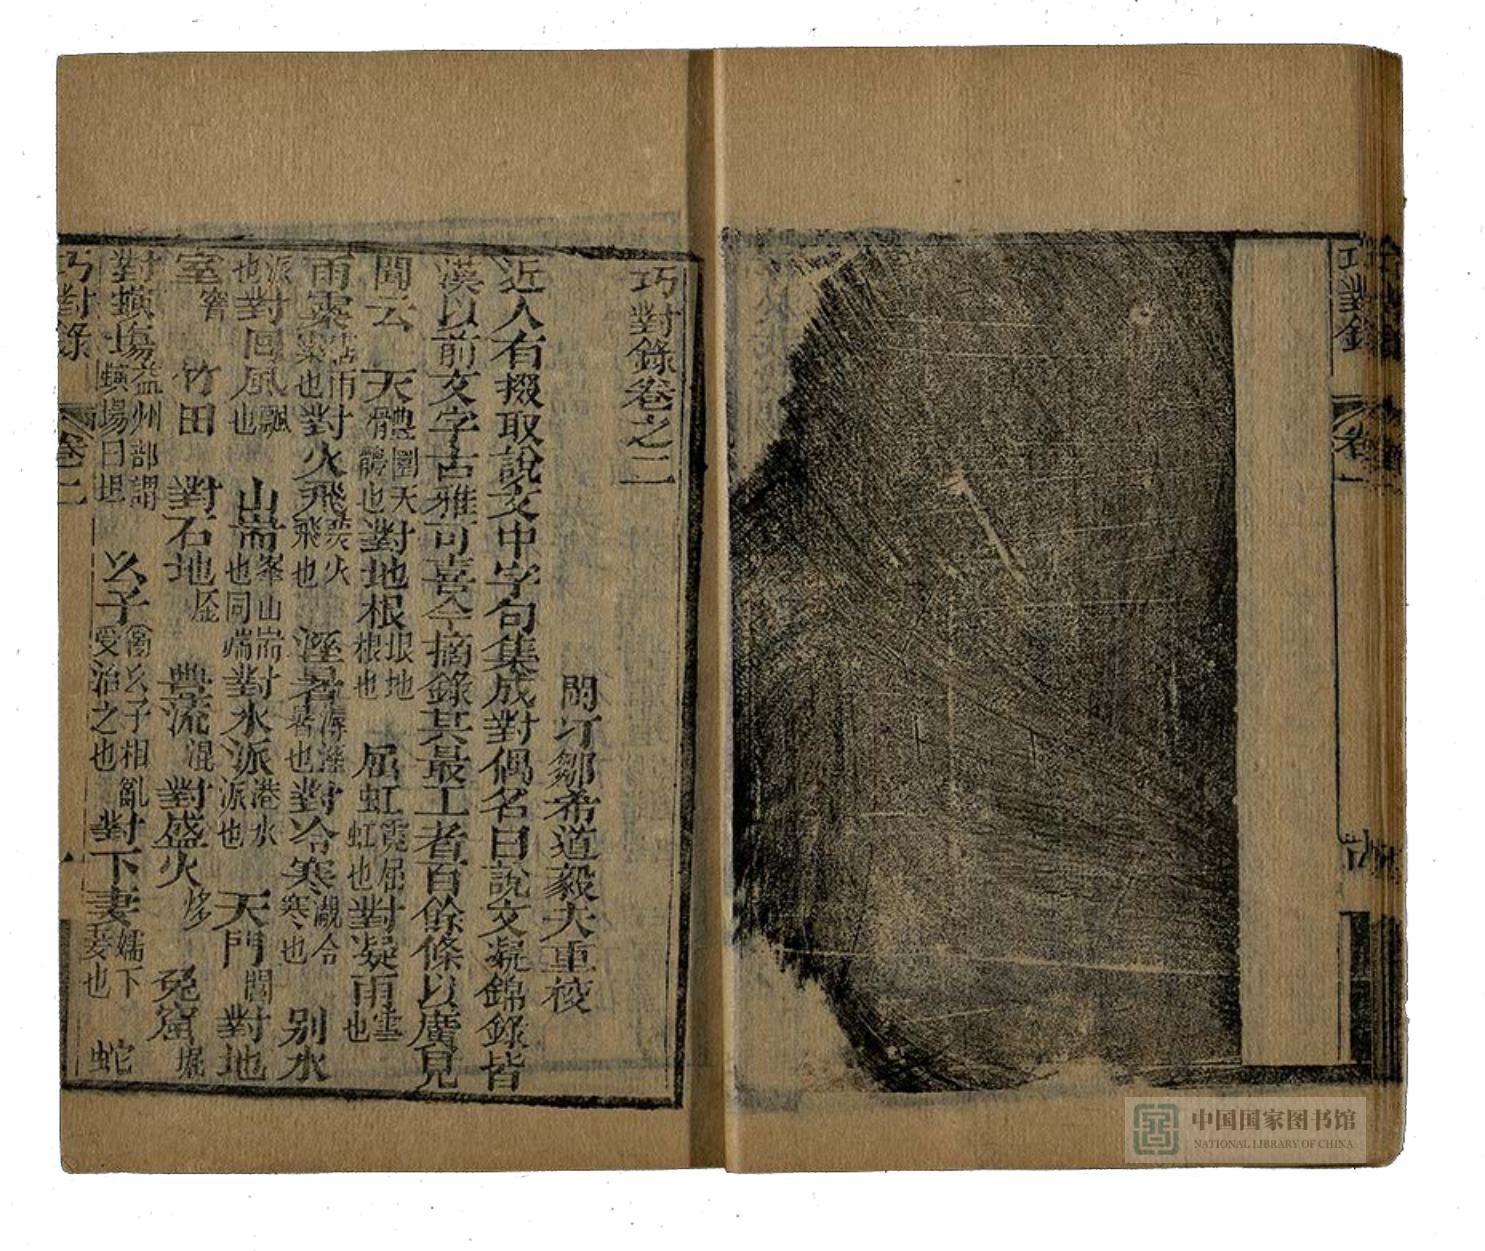 巧對錄
卷一
巧對錄卷之二
閩汀鄒希道毅夫重校
近人有掇取說文中字句集成對偶名曰說文凝錦錄皆
漢以前文字古雅可喜今摘錄其最工者百餘條以廣見
聞云 天 對地根垠地根也 屈虹霓屈虹也對凝雨雪也
雨 對火飛熛火飛也 溼暑溽溼暑也對冷寒 冷寒也 別水
派也對回風飄也 山耑峯山耑也同端對水派港水派也 天門閶對地
室窨 竹田 對石地 豊流混 對盛火 兔窟堀
對螾塲益州部謂螾場曰坥 幺子 幺子相亂受治之也對下妻嬬下妻也 蛇
巧對錄
卷二
一
中国国家图书馆
NATIONAL LIBRARY OF CHINA